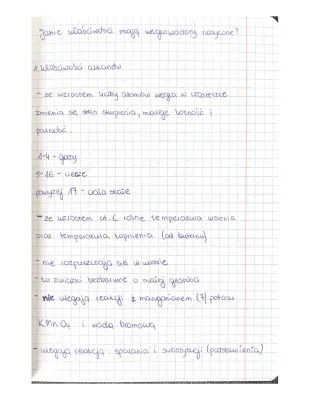 Jakie właściwości mają węglowodory nasycone?
1. Właściwości alkanów
- ze wzrostem liczby atomów węgla w cząsteczce
zmienia się stan skupienia, maleje lotność i
palność.
1-4 - gazy
5-16 - ciecze
powyżej 17 - ciała stałe
- ze wzrostem at. C rośnie temperatura wrzenia
oraz temperatura topnienia (od butanu)
- nie rozpuszczają się w wodzie
- to związki bezbarwne o małej gęstości
- nie ulegają reakcji z manganianem (7) potasu
KMnO4 i wodą bromową
- ulegają reakcją spalania i substytucji (podstawienia)